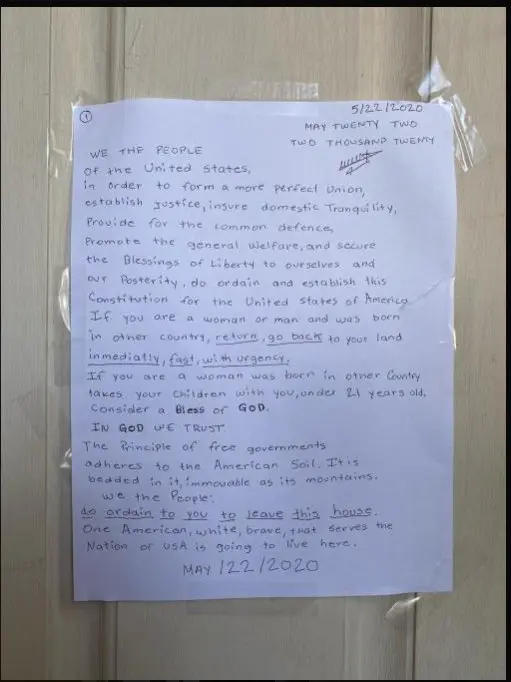 1
5/22/2020
MAY TWENTY TWO
TWO THOUSAND TWENTY
WE THE PEOPLE
Of the United States,
in Order to form a more perfect Union,
establish justice, insure domestic Tranquility,
Provide for the common defence,
Promote the general Welfare, and secure
the Blessings of Liberty to ourselves and
our Posterity, do ordain and establish this
Constitution for the United States of America
If you are a woman or man and was born
in other country, return, go back to your land
inmediatly, fast, with urgency.
If you are a woman was born in other Country
takes your children with you, under 21 years old,
Consider a Bless of GOD.
IN GOD WE TRUST
The Principle of free governments
adheres to the American Soil. It is
bedded in it, immovable as its mountains.
We the People:
do ordain to you to leave this house.
One American, white, brave, that serves the
Nation or USA is going to live here.
MAY/22/2020